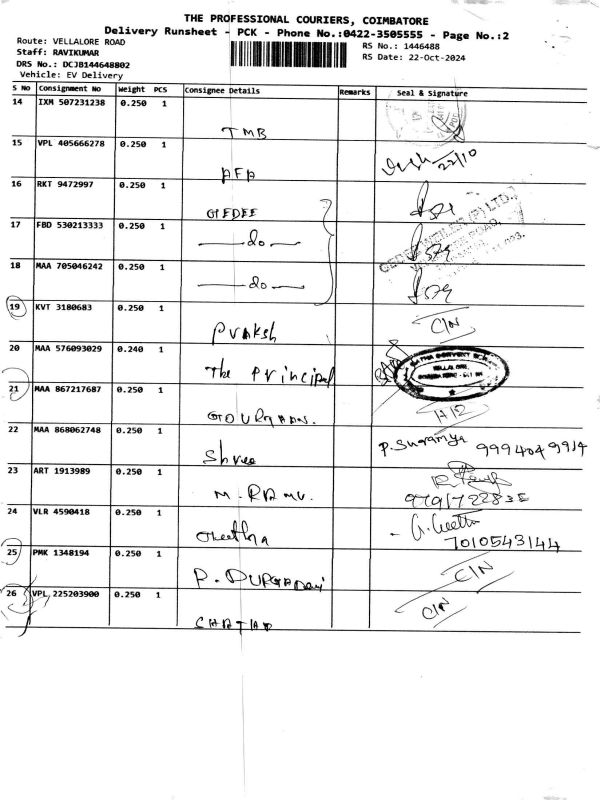 THE PROFESSIONAL COURIERS, COIMBATORE
Delivery Runsheet - PCK - Phone No.:0422-3505555 - Page No.:2
Route: VELLALORE ROAD
RS No.: 1446488
Staff: RAVIKUMAR
RS Date: 22-Oct-2024
DRS No.: DCJB144648802
Vehicle: EV Delivery
S No Consignment No Weight PCS Consignee Details Remarks Seal & Signature
14 IXM 507231238 0.250 1
TMB
15 VPL 405666278 0.250 1
22/10
AFA
16 RKT 9472997 0.250 1
GEDEE
17 FBD 530213333 0.250 1
do
18 MAA 705046242 0.250 1
do
19 KVT 3180683 0.250 1
C/N
Prakash
20 MAA 576093029 0.240 1
The Principal
21 MAA 867217687 0.250 1
22 MAA 868062748 0.250 1
P. Suganya 9994049914
Shree
23 ART 1913989 0.250 1
M. RAMU.
9791722835
24 VLR 4590418 0.250 1
G. Geetha
Geetha 7010543144
25 PMK 1348194 0.250 1
C/N
P. DURGADevi
26 VPL 225203900 0.250 1
C/N